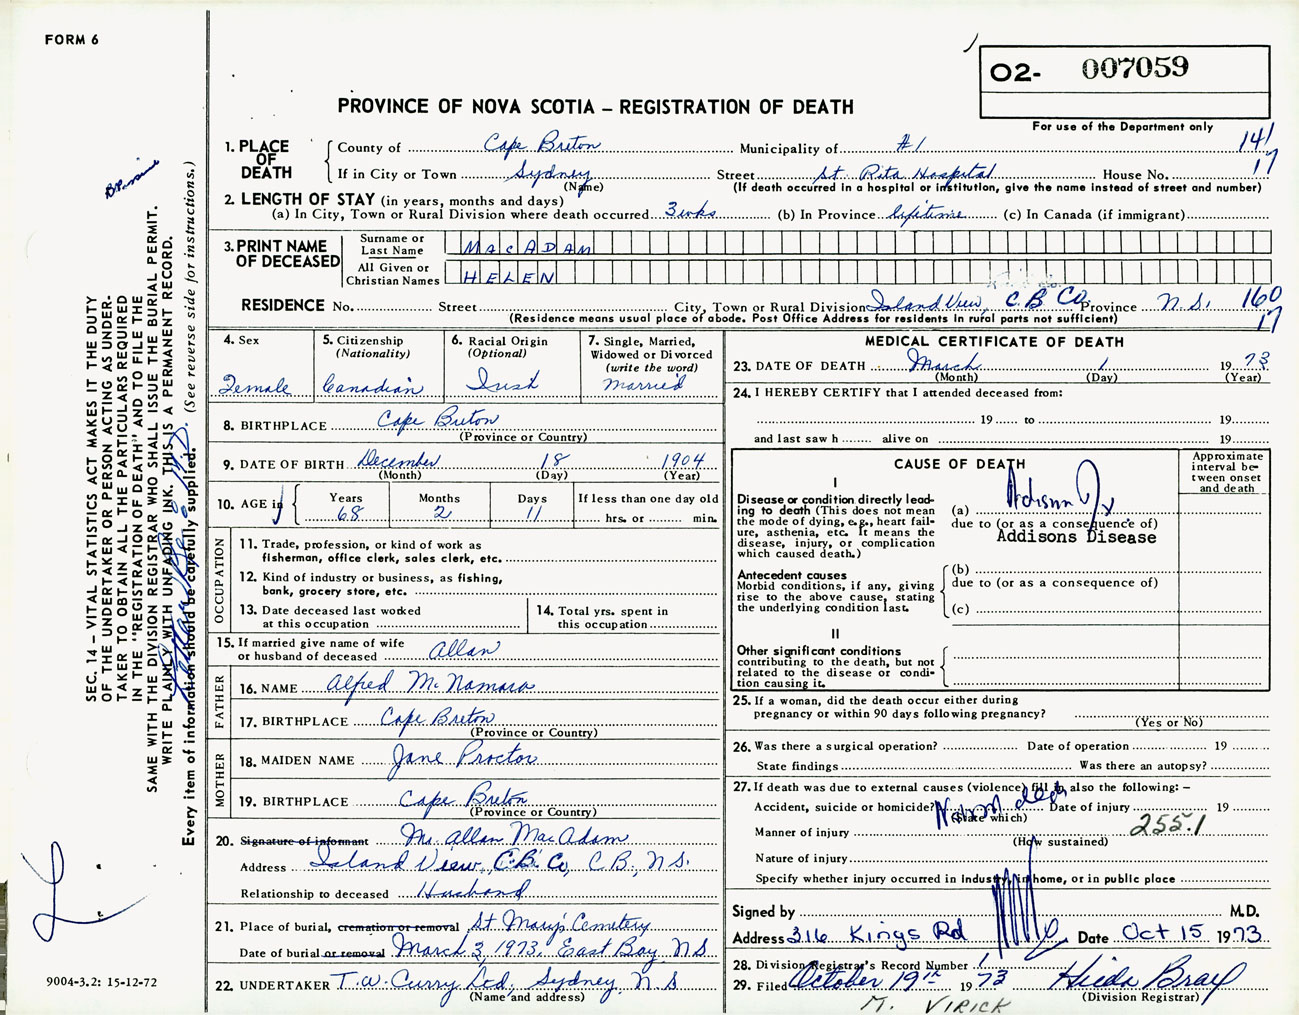 FORM 6
O2- 007059
PROVINCE OF NOVA SCOTIA – REGISTRATION OF DEATH
For use of the Department only
1. PLACE OF DEATH
County of Cape Breton Municipality of #1 141
If in City or Town Sydney Street St. Rita Hospital House No. 17
(Name) (If death occurred in a hospital or institution, give the name instead of street and number)
2. LENGTH OF STAY (in years, months and days)
(a) In City, Town or Rural Division where death occurred 3 wks (b) In Province lifetime (c) In Canada (if immigrant)
3. PRINT NAME OF DECEASED
Surname or Last Name MacADAM
All Given or Christian Names HELEN
RESIDENCE No. Street City, Town or Rural Division Island View, C.B Co Province N.S. 160
(Residence means usual place of abode. Post Office Address for residents in rural parts not sufficient) 17
4. Sex Female
5. Citizenship (Nationality) Canadian
6. Racial Origin (Optional) Irish
7. Single, Married, Widowed or Divorced (write the word) Married
8. BIRTHPLACE Cape Breton
(Province or Country)
9. DATE OF BIRTH December 18 1904
(Month) (Day) (Year)
10. AGE in Years 68 Months 2 Days 11 If less than one day old hrs. or min.
OCCUPATION
11. Trade, profession, or kind of work as fisherman, office clerk, sales clerk, etc.
12. Kind of industry or business, as fishing, bank, grocery store, etc.
13. Date deceased last worked at this occupation
14. Total yrs. spent in this occupation
15. If married give name of wife or husband of deceased Allan
FATHER
16. NAME Alfred McNamara
17. BIRTHPLACE Cape Breton
(Province or Country)
MOTHER
18. MAIDEN NAME Jane Proctor
19. BIRTHPLACE Cape Breton
(Province or Country)
20. Signature of informant Mr. Allan MacAdam
Address Island View, C.B. Co, C.B., N.S.
Relationship to deceased Husband
21. Place of burial, cremation or removal St Mary's Cemetery
Date of burial or removal March 3, 1973. East Bay, N.S.
22. UNDERTAKER T.W. Curry Ltd, Sydney, N.S
(Name and address)
MEDICAL CERTIFICATE OF DEATH
23. DATE OF DEATH March 1 1973
(Month) (Day) (Year)
24. I HEREBY CERTIFY that I attended deceased from:
19 to 19
and last saw h alive on 19
CAUSE OF DEATH
Approximate interval between onset and death
I
Disease or condition directly leading to death (This does not mean the mode of dying, e.g., heart failure, asthenia, etc. It means the disease, injury, or complication which caused death.)
(a) Addison Dx
due to (or as a consequence of)
Addisons Disease
Antecedent causes
Morbid conditions, if any, giving rise to the above cause, stating the underlying condition last.
(b)
due to (or as a consequence of)
(c)
II
Other significant conditions contributing to the death, but not related to the disease or condition causing it.
25. If a woman, did the death occur either during pregnancy or within 90 days following pregnancy?
(Yes or No)
26. Was there a surgical operation? Date of operation 19
State findings Was there an autopsy?
27. If death was due to external causes (violence) fill in also the following: –
Accident, suicide or homicide? Date of injury 19
(State which)
Manner of injury 255.1
(How sustained)
Nature of injury
Specify whether injury occurred in industry, in home, or in public place
Signed by M.D.
Address 316 Kings Rd Date Oct 15 1973
28. Division Registrar's Record Number
29. Filed October 19th 1973 Hilda Bray
(Division Registrar)
M. VIRICK
SEC. 14 – VITAL STATISTICS ACT MAKES IT THE DUTY
OF THE UNDERTAKER OR PERSON ACTING AS UNDER-
TAKER TO OBTAIN ALL THE PARTICULARS REQUIRED
IN THE "REGISTRATION OF DEATH" AND TO FILE THE
SAME WITH THE DIVISION REGISTRAR WHO SHALL ISSUE THE BURIAL PERMIT.
WRITE PLAINLY WITH UNFADING INK. THIS IS A PERMANENT RECORD.
Every item of information should be carefully supplied. (See reverse side for instructions.)
9004-3.2: 15-12-72